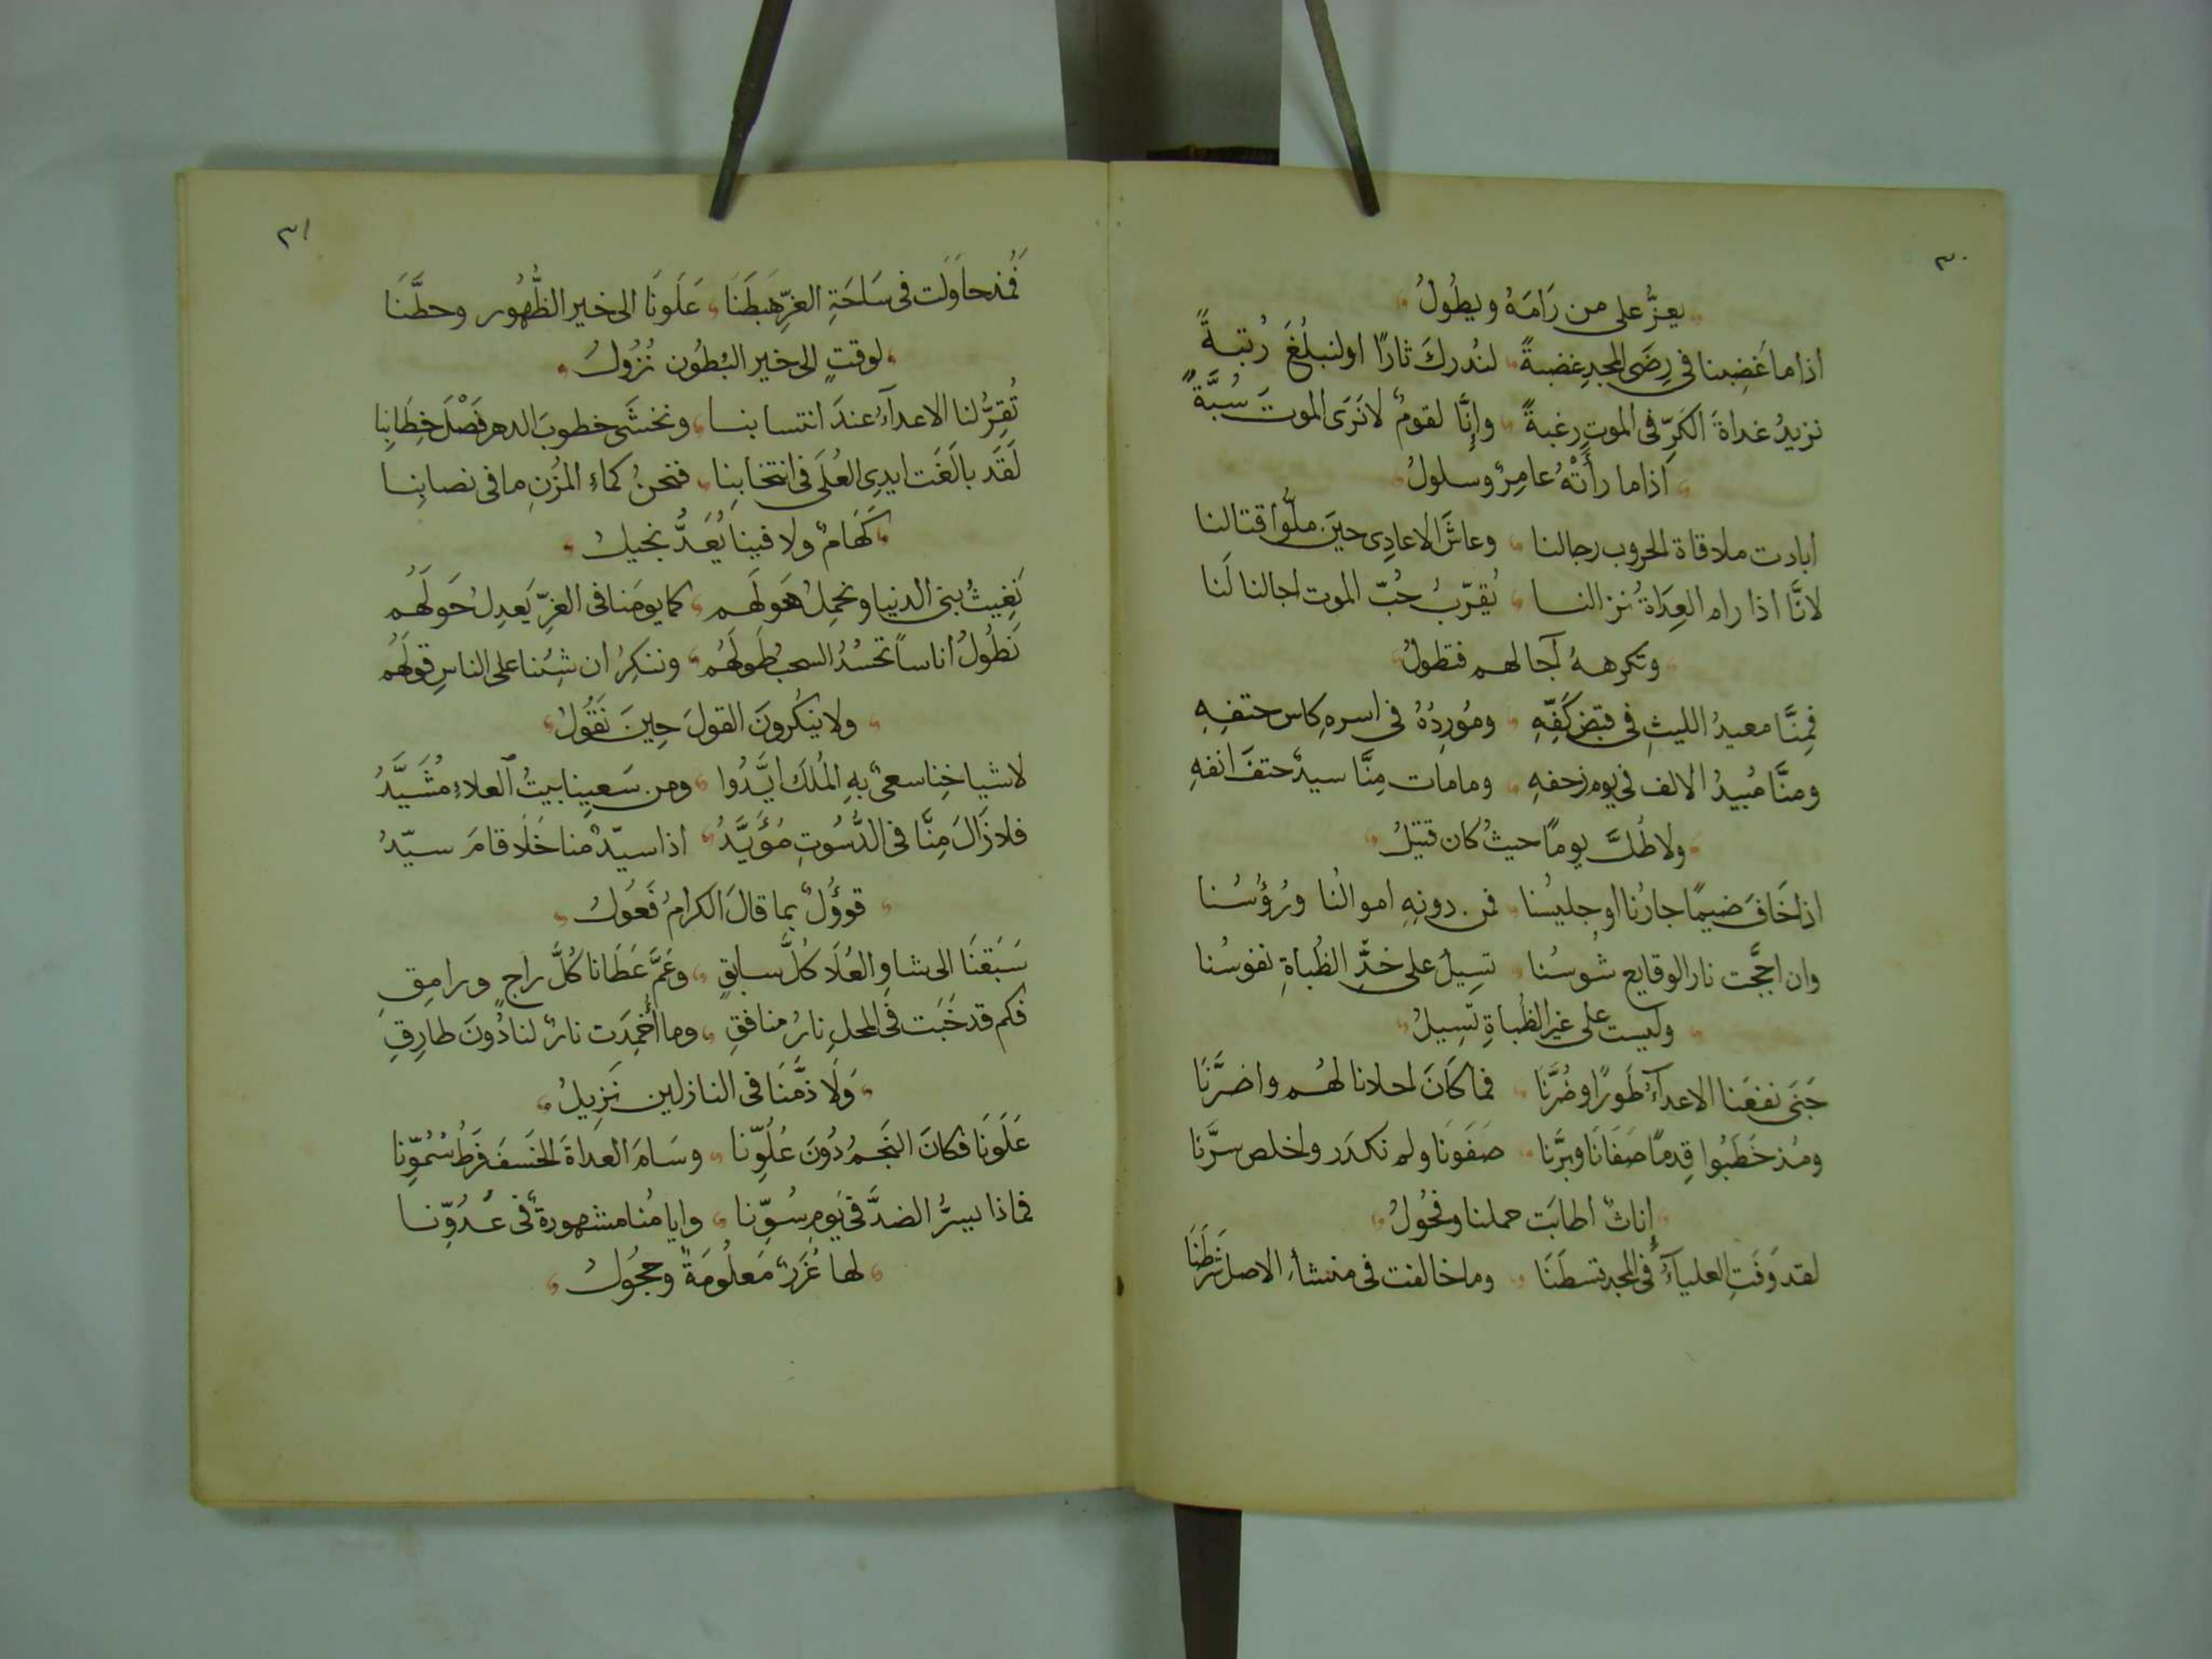 ٣٠
يعِزُّ على من رَامَهُ ويطُولُ
اذا ما غَضِبنا فى رِضَى المجدِ غضبةً لنُدركَ ثارًا او لنبلُغَ رُتبةً
نزيدُ غداةَ الكَرِّ فى الموتِ رغبةً وإِنَّا لقومٌ لا نَرَى الموتَ سُبَّةً
اذا ما رأَتْهُ عامِرٌ وسلولُ
ابادت ملاقاة الحروب رجالنا وعاشَ الاعادِى حينَ ملُّوا قتالنا
لانَّا اذا رام العِدَاةُ نزالنا يُقرّبُ حُبّ الموت اجالنا لَنا
وتكرههُ آجالهم فتطولُ
فمِنَّا معيدُ الليثِ فى قبضِ كَفِّهِ ومُورِدُهُ فى اسرهِ كاس حتفِهِ
ومنَّا مُبيدُ الالف فى يوم زحفهِ وما مات مِنَّا سيدٌ حتفَ انفهِ
ولا طُلَّ يومًا حيثُ كان قتيلُ
اذا خَافَ ضيمًا جارُنا او جليسُنا فمن دونِهِ اموالُنا ورُؤُسُنا
وان اججَّت نار الوقايع شُوسُنا تسِيلُ على خدِّ الظُباةِ نفوسُنا
وليست على غير الظُباةِ تَسِيلُ
جَنَى نفعَنا الاعداَءُ طَورًا وضُرَّنَا فما كَانَ احلانا لهُم واضرَّنَا
ومُذ خَطَبُوا قِدمًا صَفَانَا وبَرَّنا صَفَونَا ولم نكدَر واخلص سرَّنا
إِناثٌ اطابَت حملنا وفحُولُ
لقد وَفَتِ العلياَءُ فى المجد قسطَنَا وما خالفت فى منشأ الاصل شَرطَنَا
٣١
فَمُذ حاوَلَت فى سَاحَةِ العِزِّ هَبطَنَا عَلَونَا الى خير الظُّهُور وحطَّنَا
لوقتٍ الى خير البُطُون نُزُولُ
تُقِرُّ لنا الاعداَءُ عندَ انتسابنا ونخشَى خطوبَ الدهر فَصْلَ خِطَابِنا
لَقَد بالَغَت ايدِى العُلَى فى انتخابِنا فنحنُ كماءِ المُزنِ ما فى نصابِنا
كَهَامٌ ولا فينا يُعَدُّ بخيلُ
نَغِيثُ بنى الدنيا ونحمِلُ هَولَهم كما يومَنا فى العِزِّ يَعدِلُ حَولَهُم
نَطُولُ اناساً تحسُدُ السحبُ طَولَهُم وننكِرُ ان شِئنا على الناسِ قولَهُم
ولا ينكُرونَ القولَ حِينَ نَقُولُ
لاشياخِنا سعىٌ بهِ المُلكَ ايَّدُوا ومن سَعيِنا بيتُ العلاءِ مُشَيَّدُ
فلا زَالَ مِنَّا فى الدُّسُوتِ مُؤَيَّدُ اذا سيّدٌ منا خَلَا قامَ سيّدُ
قوؤُلٌ بما قالَ الكرامُ فَعُولُ
سَبَقنَا الى شاوِ العُلَا كُلَّ سابقٍ وعَمَّ عَطَانا كُلَّ راجٍ ورامِقِ
فكم قد خَبَت فى المحلِ نارُ منافقِ وما أُخمِدَت نارٌ لنا دُونَ طارِقِ
وَلَا ذمَّنَا فى النازلين نَزِيلُ
عَلَونَا فكانَ النَجمُ دُونَ عُلُوِّنا وسَامَ العداةَ الخَسفَ فَرطُ سُمُوِّنا
فماذا يسرُّ الضدَّ فى يَومِ سُوِّنا وايامُنا مشهورةٌ فى عدُوِّنا
لها غُرَرٌ مَعلُومَةٌ وحجُولُ